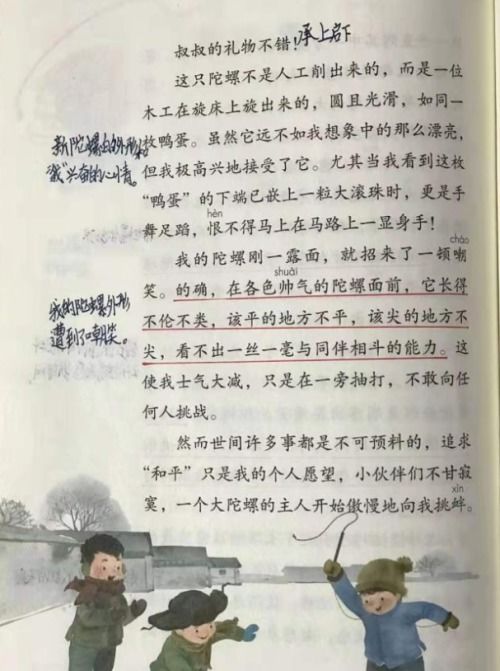 叔叔的礼物不错！承上启下
这只陀螺不是人工削出来的，而是一位
木工在旋床上旋出来的，圆且光滑，如同一
枚鸭蛋。虽然它远不如我想象中的那么漂亮，
但我极高兴地接受了它。尤其当我看到这枚
“鸭蛋”的下端已嵌上一粒大滚珠时，更是手
hèn
舞足蹈，恨不得马上在马路上一显身手！
新陀螺的外形和
“我”兴奋的心情。
cháo
我的陀螺刚一露面，就招来了一顿嘲
shuài
笑。的确，在各色帅气的陀螺面前，它长得
不伦不类，该平的地方不平，该尖的地方不
尖，看不出一丝一毫与同伴相斗的能力。这
使我士气大减，只是在一旁抽打，不敢向任
何人挑战。
我的陀螺外形
遭到了嘲笑。
然而世间许多事都是不可预料的，追求
“和平”只是我的个人愿望，小伙伴们不甘寂
xìn
寞，一个大陀螺的主人开始傲慢地向我挑衅。